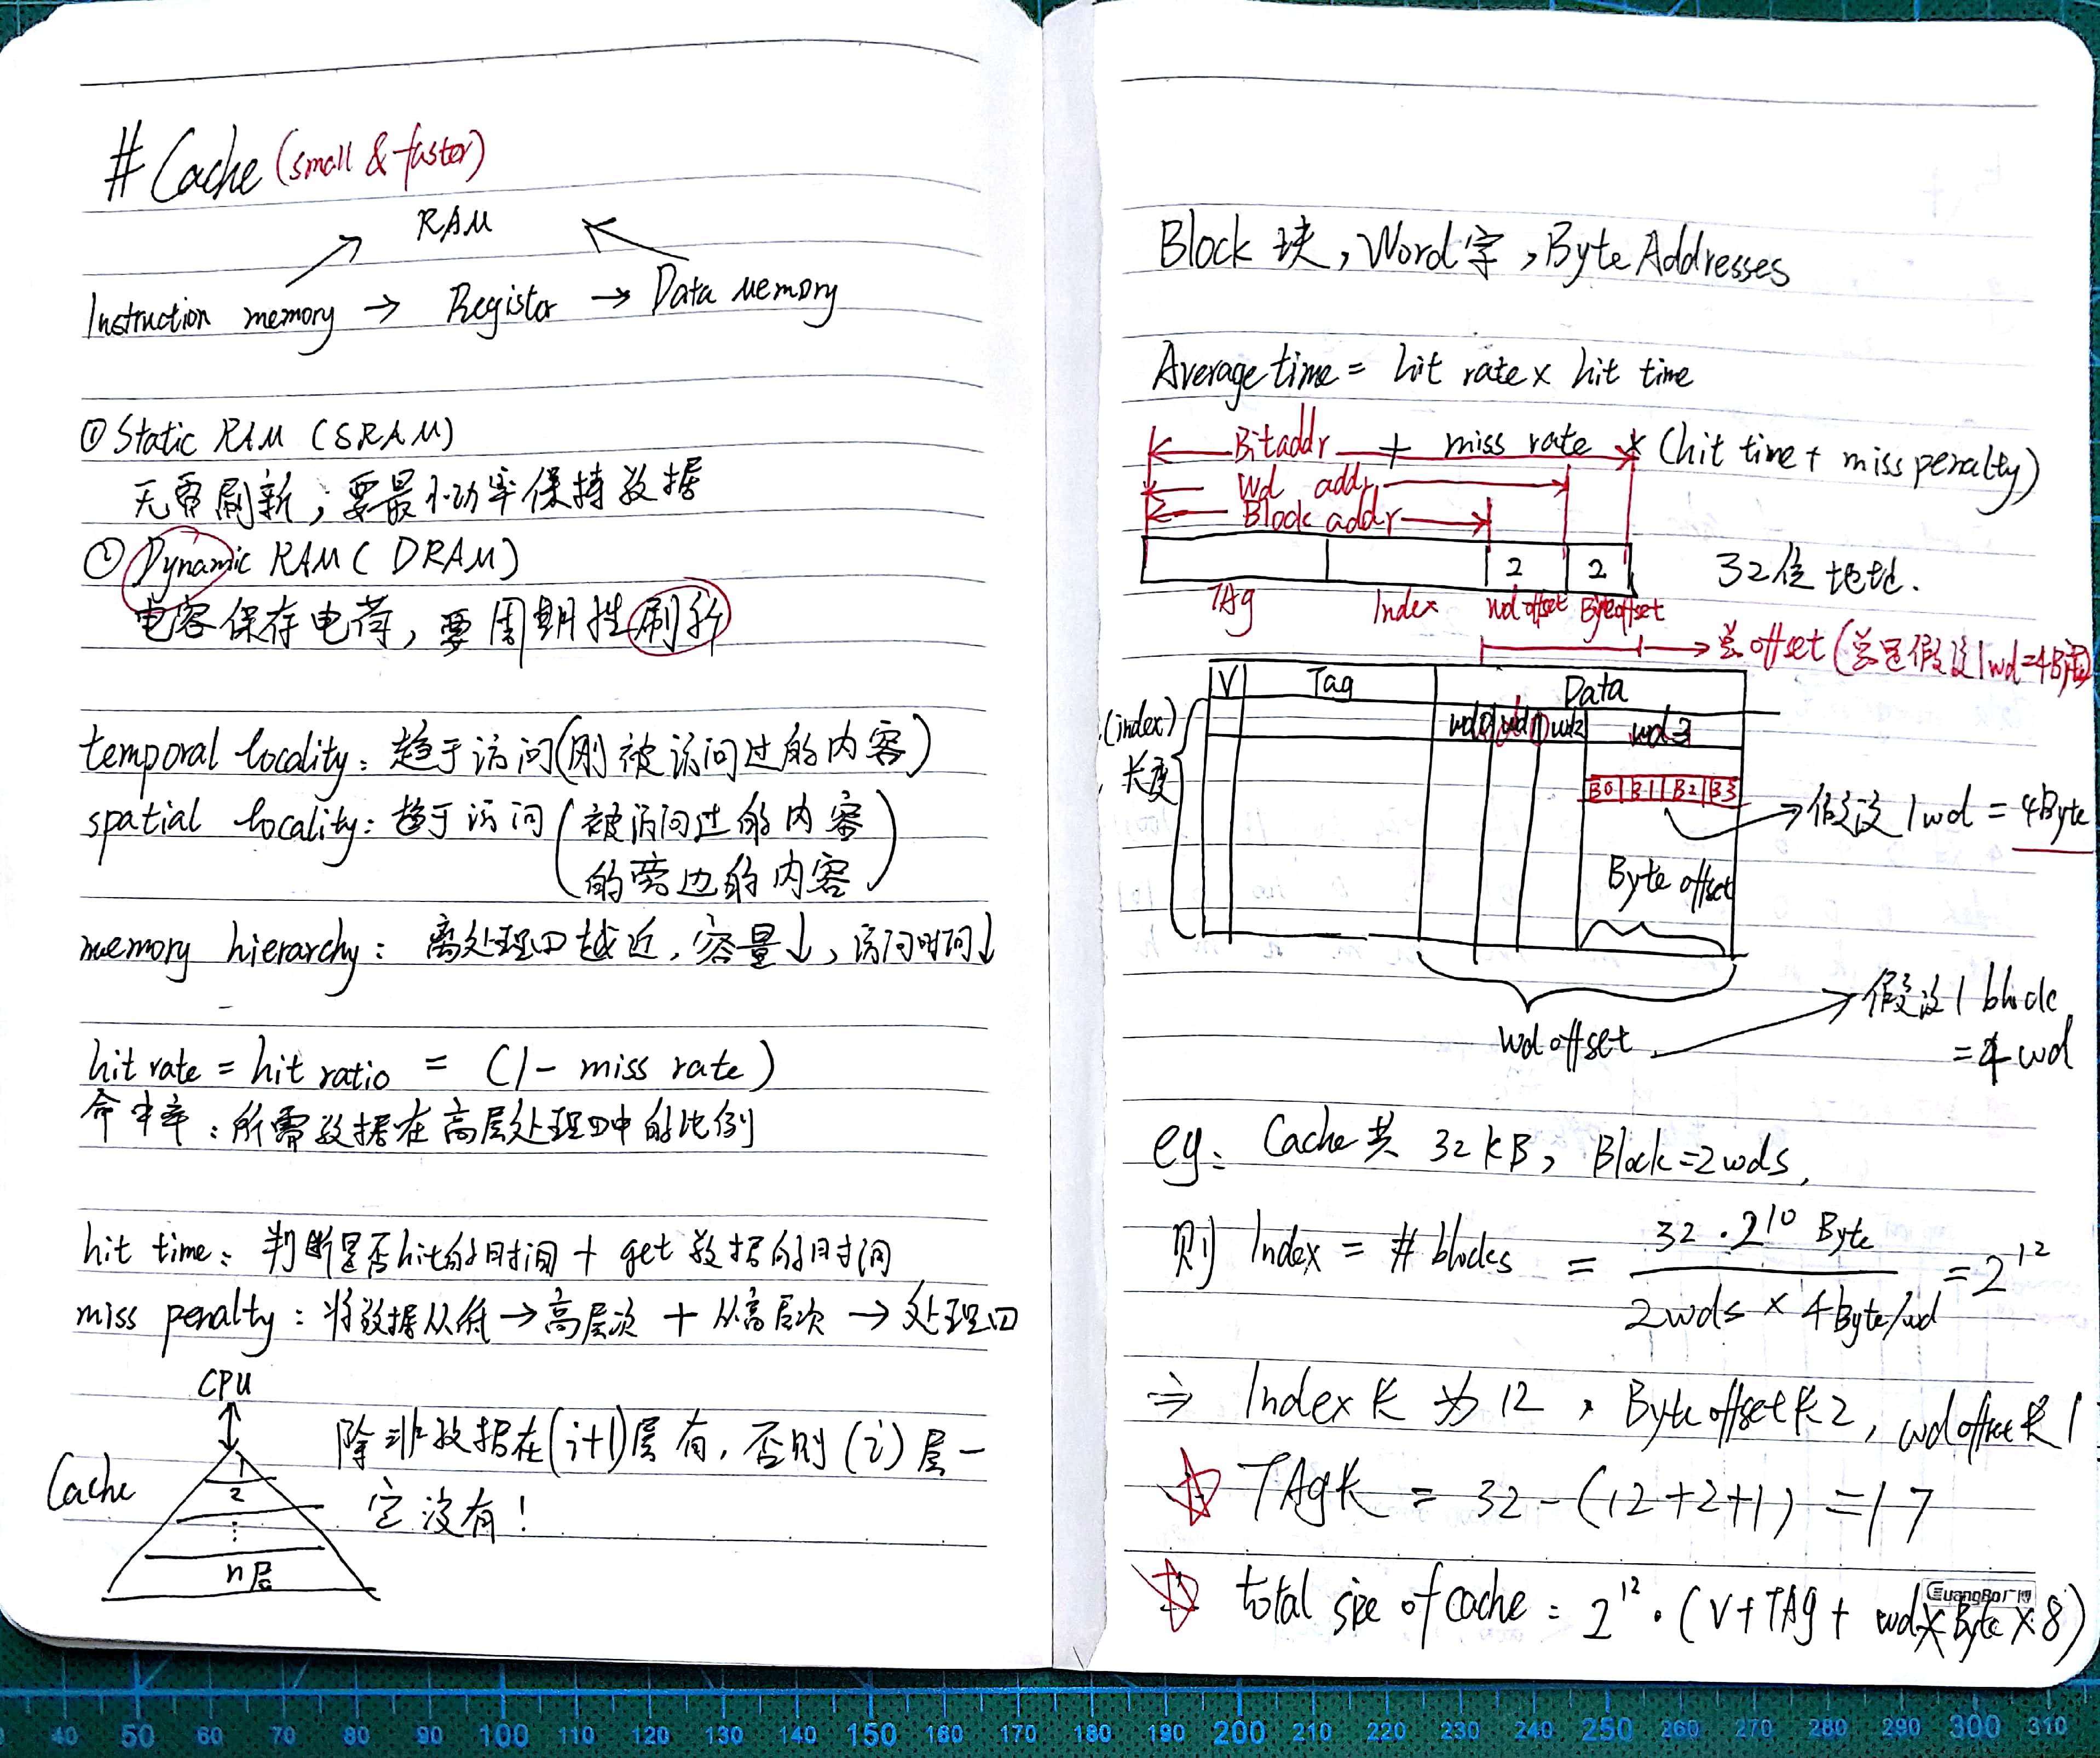 # Cache (small & faster)
RAM
Instruction memory → Register → Data memory
① Static RAM (SRAM)
无需刷新；要最小功率保持数据
② Dynamic RAM (DRAM)
电容保存电荷，要周期性刷新
temporal locality: 趋于访问(刚被访问过的内容)
spatial locality: 趋于访问(被访问过的内容
的旁边的内容)
memory hierarchy: 离处理四越近，容量↓，访问时间↓
hit rate = hit ratio = (1 - miss rate)
命中率：所需数据在高层处理四中的比例
hit time: 判断是否hit的时间 + get 数据的时间
miss penalty: 将数据从低→高层次 + 从高层次 → 处理四
CPU
Cache
1
2
⋮
n层
除非数据在(i+1)层有，否则(i)层一
定没有！
Block 块, Word 字, Byte Addresses
Average time = hit rate × hit time
+ miss rate × (hit time + miss penalty)
Bit addr
Wd addr
Block addr
2 2
32位地址.
TAg Index wd offset Byte offset
→ 总offset (总是假设1wd=4Byte)
V Tag Data
(index)
长度
wd0 wd1 wd2 wd3
B0 B1 B2 B3
→ 假设 1wd = 4Byte
Byte offset
wd offset
→ 假设 1 block
= 4 wd
eg: Cache共 32 kB, Block=2wds,
则 Index = # blocks = 32·2^10 Byte / 2wds × 4Byte/wd = 2^12
⇒ Index长为12, Byte offset长2, wd offset长1
☆ TAg长 = 32-(12+2+1) = 17
☆ total size of cache = 2^12 · (V+TAg + wd×Byte×8)
GuangBo广博
40 50 60 70 80 90 100 110 120 130 140 150 160 170 180 190 200 210 220 230 240 250 260 270 280 290 300 310